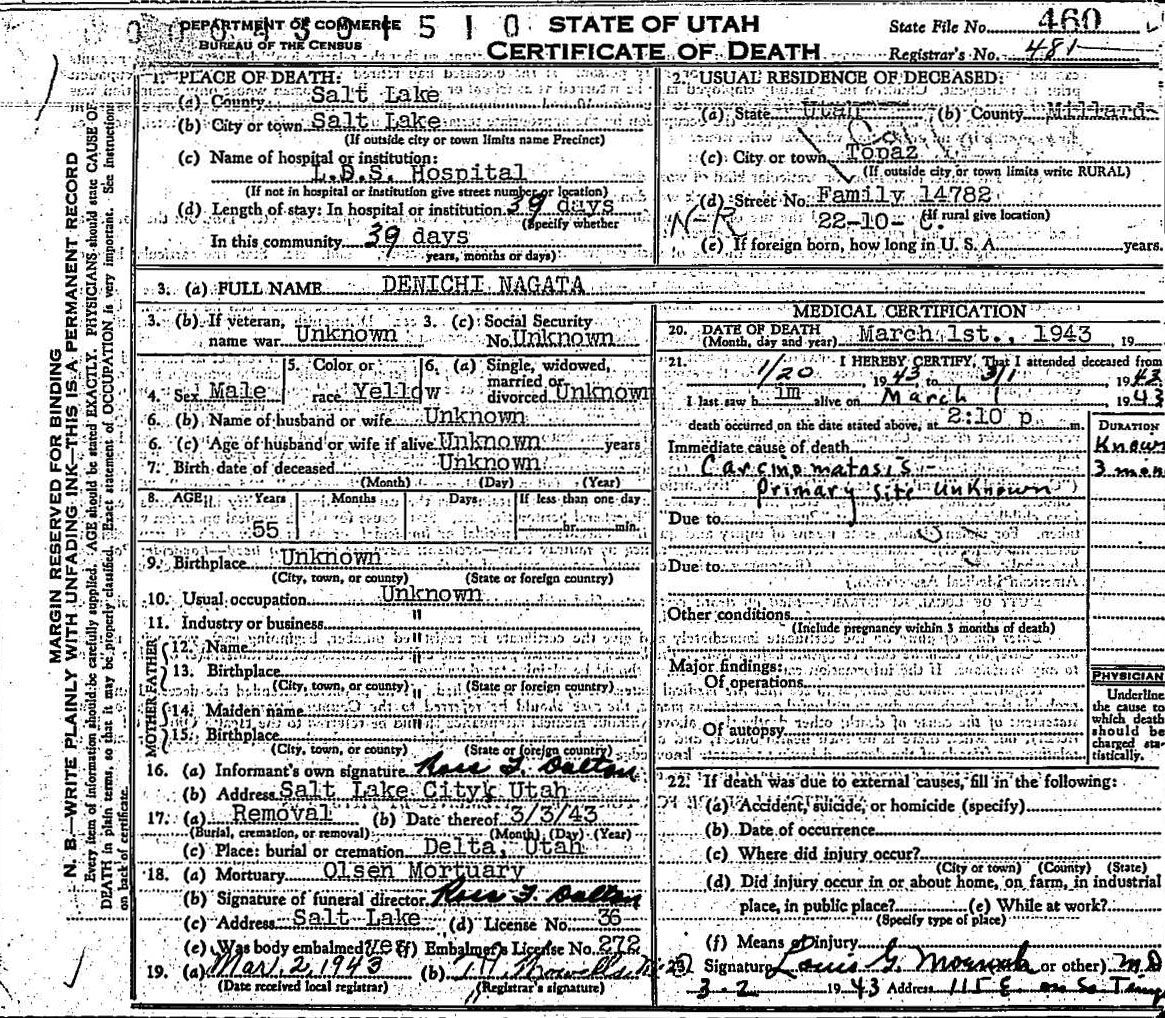 DEPARTMENT OF COMMERCE
BUREAU OF THE CENSUS
510
STATE OF UTAH
CERTIFICATE OF DEATH
State File No. 460
Registrar's No. 481
MARGIN RESERVED FOR BINDING
N. B.—WRITE PLAINLY WITH UNFADING INK—THIS IS A PERMANENT RECORD
Every item of information should be carefully supplied. AGE should be stated EXACTLY. PHYSICIANS should state CAUSE OF
DEATH in plain terms, so that it may be properly classified. Exact statement of OCCUPATION is very important. See Instructions
on back of certificate.
1. PLACE OF DEATH:
(a) County Salt Lake
(b) City or town Salt Lake
(If outside city or town limits name Precinct)
(c) Name of hospital or institution:
L.D.S. Hospital
(If not in hospital or institution give street number or location)
(d) Length of stay: In hospital or institution 39 days
(Specify whether
In this community 39 days
years, months or days)
2. USUAL RESIDENCE OF DECEASED:
(a) State Utah (b) County Millard
(c) City or town Topaz
(If outside city or town limits write RURAL)
(d) Street No. Family 14782
N-R 22-10- C. (If rural give location)
(e) If foreign born, how long in U. S. A. years.
3. (a) FULL NAME DENICHI NAGATA
3. (b) If veteran, name war Unknown 3. (c) Social Security No. Unknown
4. Sex Male 5. Color or race Yellow 6. (a) Single, widowed, married or divorced Unknown
6. (b) Name of husband or wife Unknown
6. (c) Age of husband or wife if alive Unknown years
7. Birth date of deceased Unknown
(Month) (Day) (Year)
8. AGE Years Months Days If less than one day
55 hr. min.
9. Birthplace Unknown
(City, town, or county) (State or foreign country)
10. Usual occupation Unknown
11. Industry or business "
FATHER
12. Name "
13. Birthplace "
(City, town, or county) (State or foreign country)
MOTHER
14. Maiden name "
15. Birthplace "
(City, town, or county) (State or foreign country)
16. (a) Informant's own signature Ross F. Dalton
(b) Address Salt Lake City, Utah
17. (a) Removal (b) Date thereof 3/3/43
(Burial, cremation, or removal) (Month) (Day) (Year)
(c) Place: burial or cremation Delta, Utah
18. (a) Mortuary Olsen Mortuary
(b) Signature of funeral director Ross F. Dalton
(c) Address Salt Lake (d) License No. 36
(e) Was body embalmed? Yes (f) Embalmer's License No. 272
19. (a) Mar. 2, 1943 (b)
(Date received local registrar) (Registrar's signature)
MEDICAL CERTIFICATION
20. DATE OF DEATH March 1st., 1943, 19
(Month, day and year)
21. I HEREBY CERTIFY, That I attended deceased from
1/20, 1943, to 3/1, 1943
I last saw him alive on March 1, 1943
death occurred on the date stated above, at 2:10 p m.
DURATION
Immediate cause of death Known
Carcinomatosis - 3 mon
Primary site unknown
Due to
Due to
Other conditions
(Include pregnancy within 3 months of death)
Major findings:
Of operations
Of autopsy
PHYSICIAN
Underline
the cause to
which death
should be
charged sta-
tistically.
22. If death was due to external causes, fill in the following:
(a) Accident, suicide, or homicide (specify)
(b) Date of occurrence
(c) Where did injury occur?
(City or town) (County) (State)
(d) Did injury occur in or about home, on farm, in industrial
place, in public place? (e) While at work?
(Specify type of place)
(f) Means of injury
23. Signature Louis G. or other) M.D.
3-2 1943 Address 115 E on So Temp